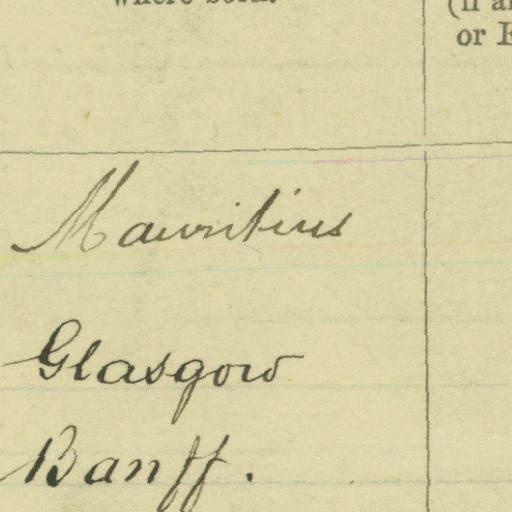 where born.
(If
or
Mauritius
Glasgow
Banff.